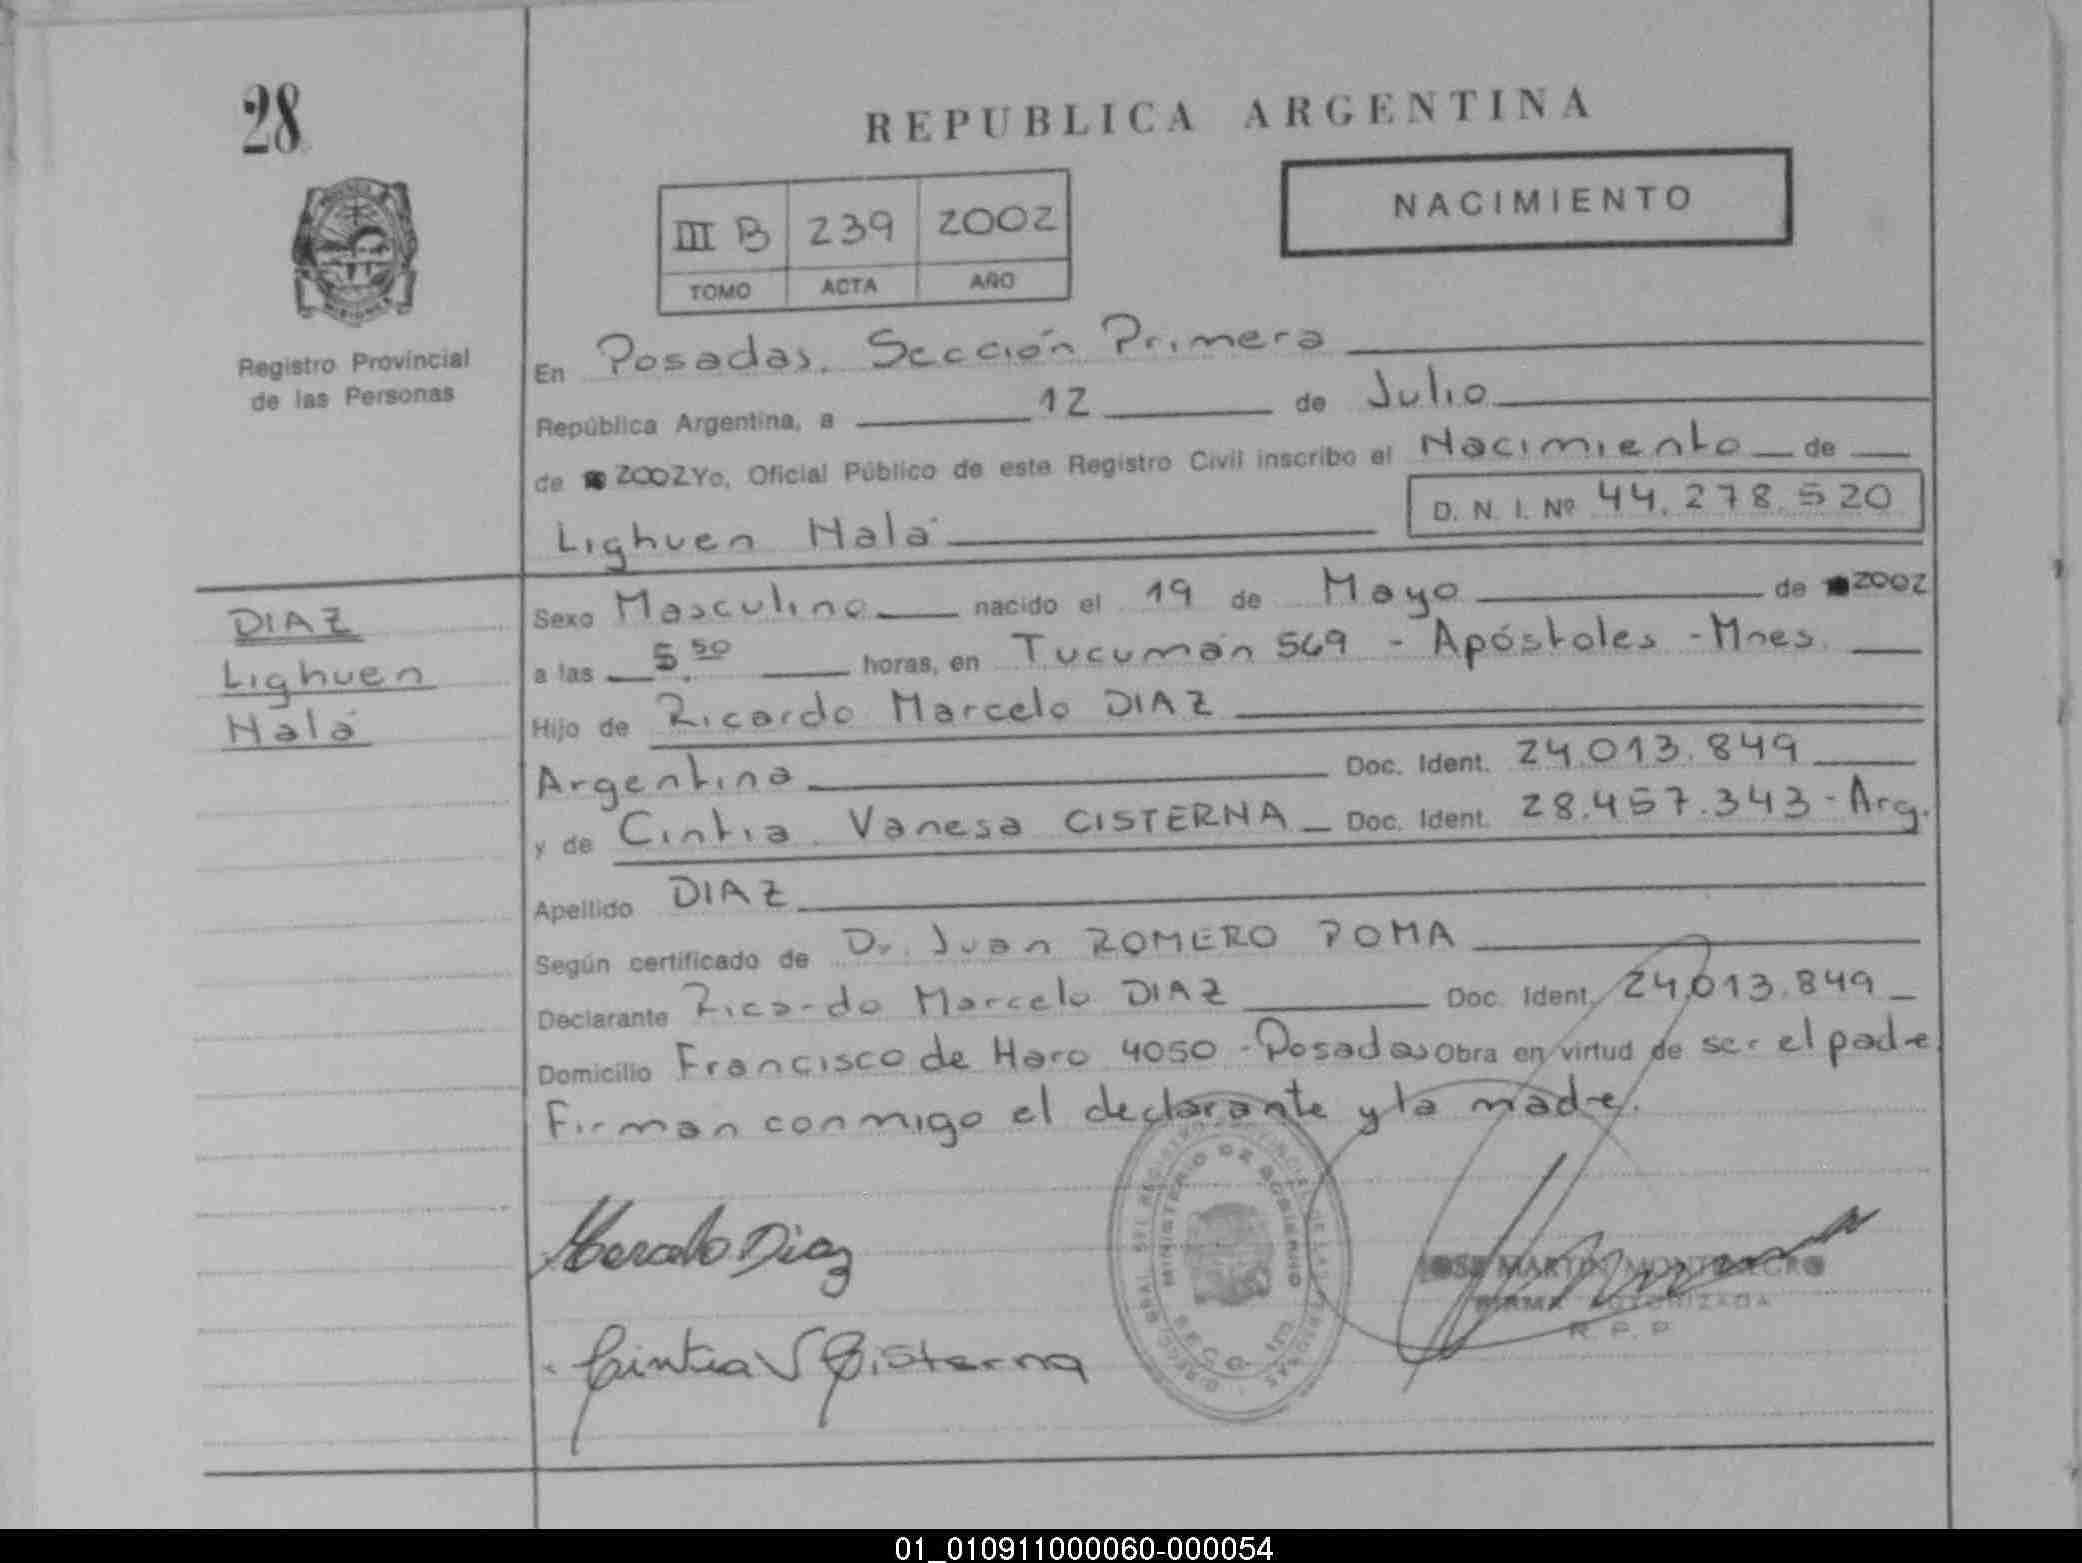 28
REPUBLICA ARGENTINA
NACIMIENTO
III B 239 2002
TOMO ACTA AÑO
Registro Provincial
de las Personas
En Posadas, Sección Primera
República Argentina, a 12 de Julio
de 2002 Yo, Oficial Público de este Registro Civil inscribo el Nacimiento de
D. N. I. Nº 44.278.520
Lighuen Nala
DIAZ
Lighuen
Nala
Sexo Masculino nacido el 19 de Mayo de 2002
a las 5.50 horas, en Tucumán 569 - Apóstoles - Mnes.
Hijo de Ricardo Marcelo DIAZ
Argentino Doc. Ident. 24.013.849
y de Cintia Vanesa CISTERNA Doc. Ident. 28.457.343 - Arg.
Apellido DIAZ
Según certificado de Dr. Juan ROMERO POMA
Declarante Ricardo Marcelo DIAZ Doc. Ident. 24.013.849
Domicilio Francisco de Haro 4050 - Posadas Obra en virtud de ser el padre
Firman conmigo el declarante y la madre.
Marcelo Diaz
Cintia V Cisterna
MINISTERIO DE GOBIERNO
JOSE MARTIN MONTENEGRO
FIRMA AUTORIZADA
R. P. P
01_010911000060-000054